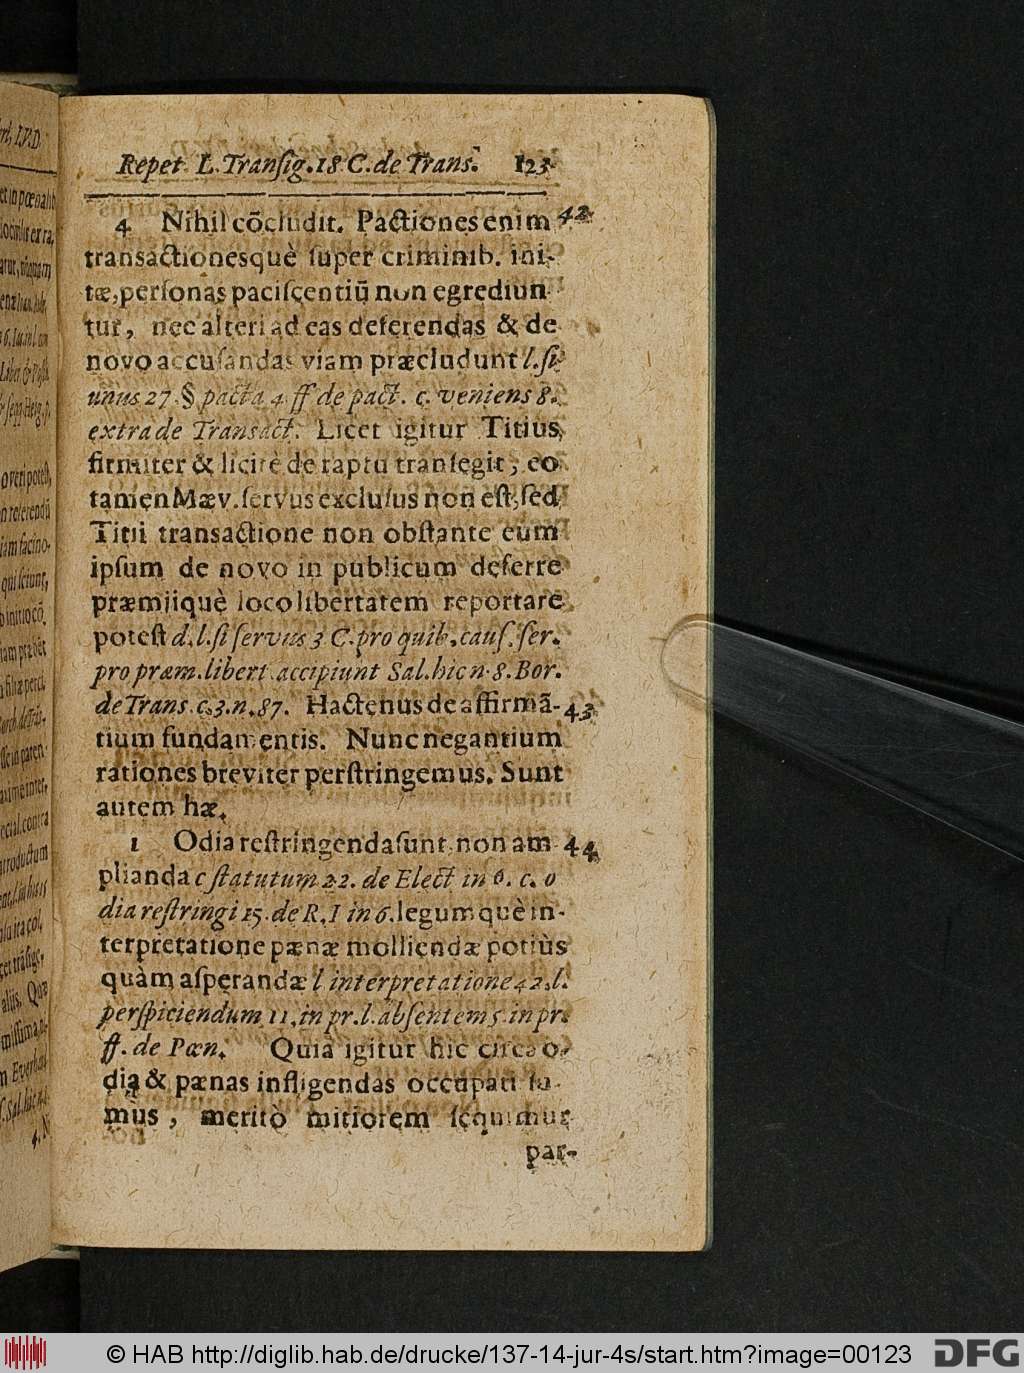 Repet L. Transig. 18 C. de Trans. 123
4 Nihil cōcludit. Pactiones enim 42
transactionesquè super criminib. ini-
tæ, personas pacisçentiū non egrediun
tur, nec alteri ad eas deferendas & de
novo accusandas viam præcludunt l. si
unus 27. § pacta 4 ff de pact. c. veniens 8.
extra de Transact. Licet igitur Titius,
firmiter & licitè de raptu transegit, eo
tamen Mæv. servus exclusus non est, sed
Titii transactione non obstante eum
ipsum de novo in publicum deferre
præmiiquè loco libertatem reportare
potest d. l. si servus 3 C. pro quib. caus. ser.
pro præm. libert. accipiunt Sal. hic n. 8. Bor.
de Trans. c. 3. n. 87. Hactenus de affirmā- 43
tium fundamentis. Nunc negantium
rationes breviter perstringemus. Sunt
autem hæ.
1 Odia restringenda sunt, non am 44
plianda c statutum 22. de Elect in 6. c. o
dia restringi 15. de R. I in 6. legumquè in-
terpretatione pænæ molliendæ potiùs
quàm asperandæ l interpretatione 42. l.
perspiciendum 11. in pr. l. absentem 5. in pr.
ff. de Pœn. Quia igitur hic circa o-
dia & pænas infligendas occupati su-
mus, meritò mitiorem sequimur
par-
© HAB http://diglib.hab.de/drucke/137-14-jur-4s/start.htm?image=00123
DFG